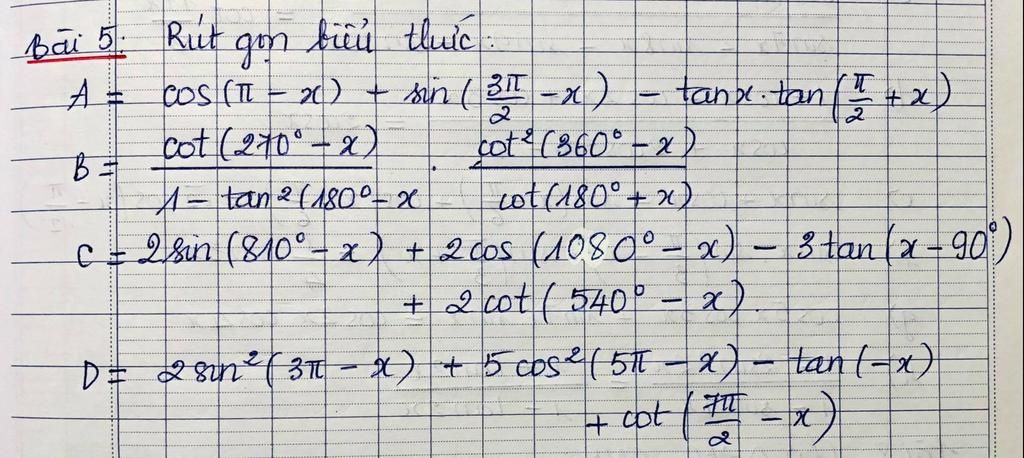 Bài 5: Rút gọn biểu thức:
A = cos(π - x) + sin(3π/2 - x) - tanx.tan(π/2 + x)
B = cot(270° - x)/1 - tan²(180° - x . cot²(360° - x)/cot(180° + x)
C = 2sin(810° - x) + 2cos(1080° - x) - 3tan(x - 90°)
+ 2cot(540° - x).
D = 2sin²(3π - x) + 5cos²(5π - x) - tan(-x)
+ cot(7π/2 - x)